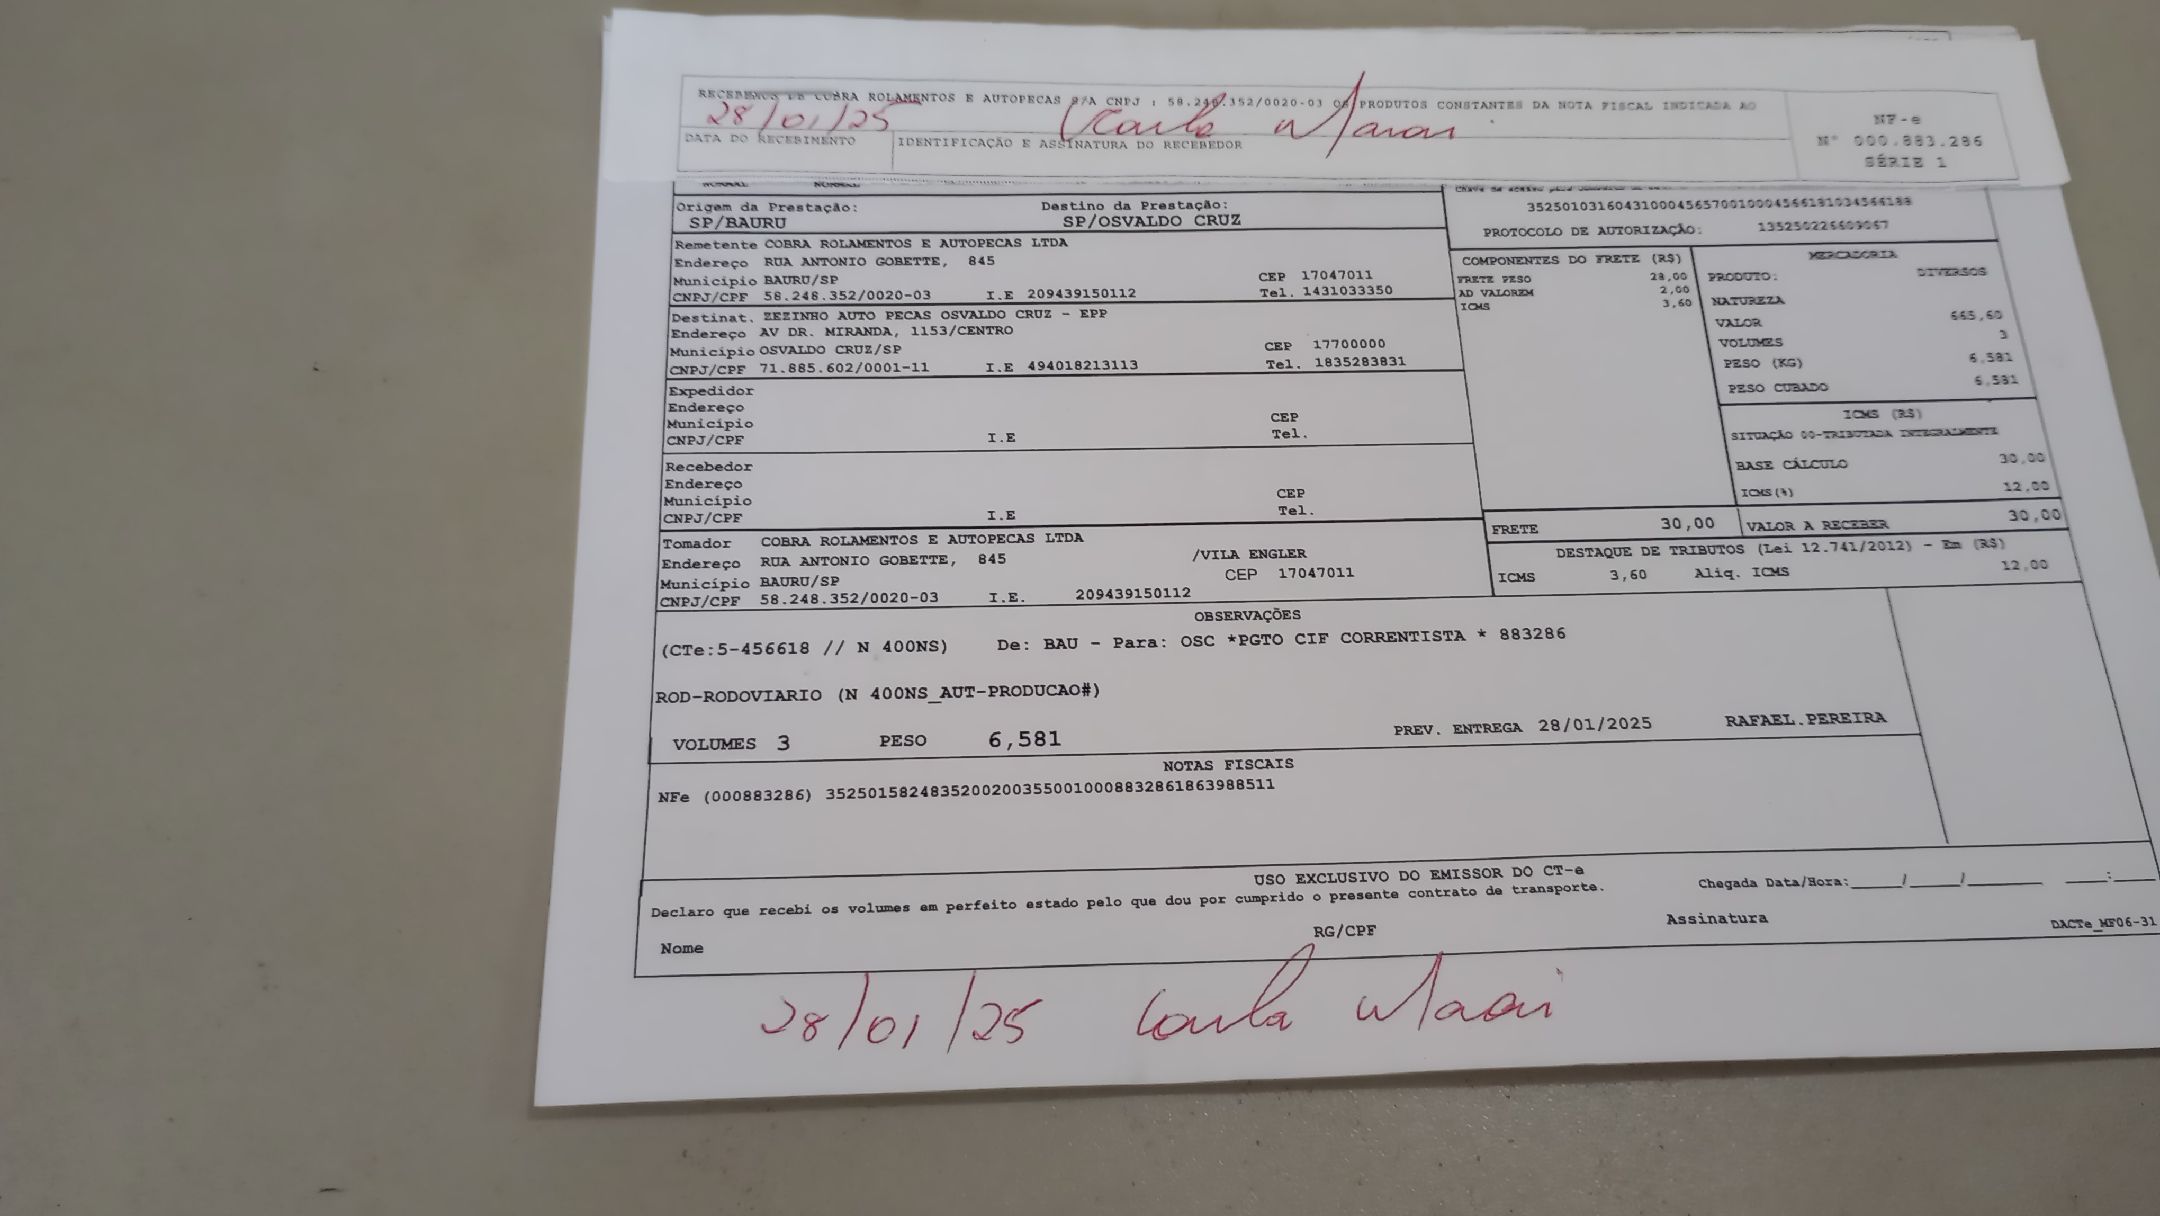 RECEBEMOS DE COBRA ROLAMENTOS E AUTOPECAS S/A CNPJ : 58.248.352/0020-03 OS PRODUTOS CONSTANTES DA NOTA FISCAL INDICADA AO
28/01/25 Carla
DATA DO RECEBIMENTO IDENTIFICAÇÃO E ASSINATURA DO RECEBEDOR
NF-e
N° 000.883.286
SÉRIE 1
NORMAL NORMAL
Origem da Prestação: Destino da Prestação:
SP/BAURU SP/OSVALDO CRUZ
PROTOCOLO DE AUTORIZAÇÃO:
Remetente COBRA ROLAMENTOS E AUTOPECAS LTDA
Endereço RUA ANTONIO GOBETTE, 845
Município BAURU/SP CEP 17047011
CNPJ/CPF 58.248.352/0020-03 I.E 209439150112 Tel. 1431033350
Destinat. ZEZINHO AUTO PECAS OSVALDO CRUZ - EPP
Endereço AV DR. MIRANDA, 1153/CENTRO
Município OSVALDO CRUZ/SP CEP 17700000
CNPJ/CPF 71.885.602/0001-11 I.E 494018213113 Tel. 1835283831
Expedidor
Endereço
Município CEP
CNPJ/CPF I.E Tel.
Recebedor
Endereço
Município CEP
CNPJ/CPF I.E Tel.
Tomador COBRA ROLAMENTOS E AUTOPECAS LTDA
Endereço RUA ANTONIO GOBETTE, 845 /VILA ENGLER
Município BAURU/SP CEP 17047011
CNPJ/CPF 58.248.352/0020-03 I.E. 209439150112
COMPONENTES DO FRETE (R$)
FRETE PESO 28,00
AD VALOREM 2,00
ICMS 3,60
MERCADORIA
PRODUTO: DIVERSOS
NATUREZA
VALOR 665,60
VOLUMES 3
PESO (KG) 6,581
PESO CUBADO 6,581
ICMS (R$)
SITUAÇÃO 00-TRIBUTADA INTEGRALMENTE
BASE CÁLCULO 30,00
ICMS(%) 12,00
FRETE 30,00 VALOR A RECEBER 30,00
DESTAQUE DE TRIBUTOS (Lei 12.741/2012) - Em (R$)
ICMS 3,60 Aliq. ICMS 12,00
OBSERVAÇÕES
(CTe:5-456618 // N 400NS) De: BAU - Para: OSC *PGTO CIF CORRENTISTA * 883286
ROD-RODOVIARIO (N 400NS_AUT-PRODUCAO#)
VOLUMES 3 PESO 6,581 PREV. ENTREGA 28/01/2025 RAFAEL.PEREIRA
NOTAS FISCAIS
NFe (000883286) 35250158248352002003550010008832861863988511
USO EXCLUSIVO DO EMISSOR DO CT-e
Declaro que recebi os volumes em perfeito estado pelo que dou por cumprido o presente contrato de transporte.
Chegada Data/Hora:____/____/______ ____:____
Nome RG/CPF Assinatura DACTe_MF06-31
28/01/25 Carla